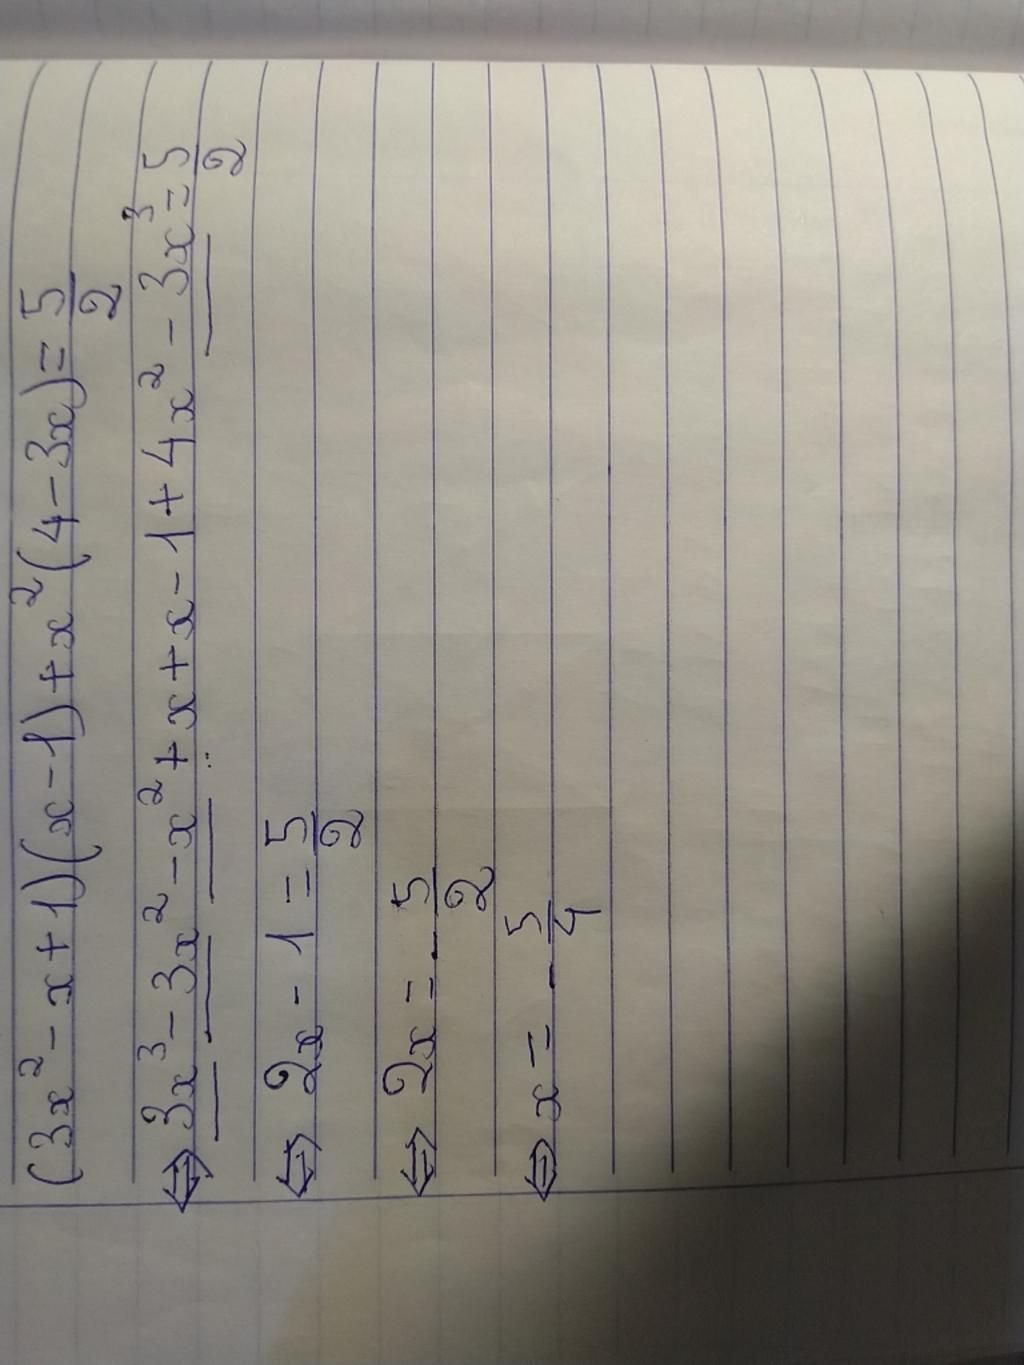 (3x² - x + 1)(x - 1) + x²(4 - 3x) = 5/2
⇔ 3x³ - 3x² - x² + x + x - 1 + 4x² - 3x³ = 5/2
⇔ 2x - 1 = 5/2
⇔ 2x = - 5/2
⇔ x = - 5/4